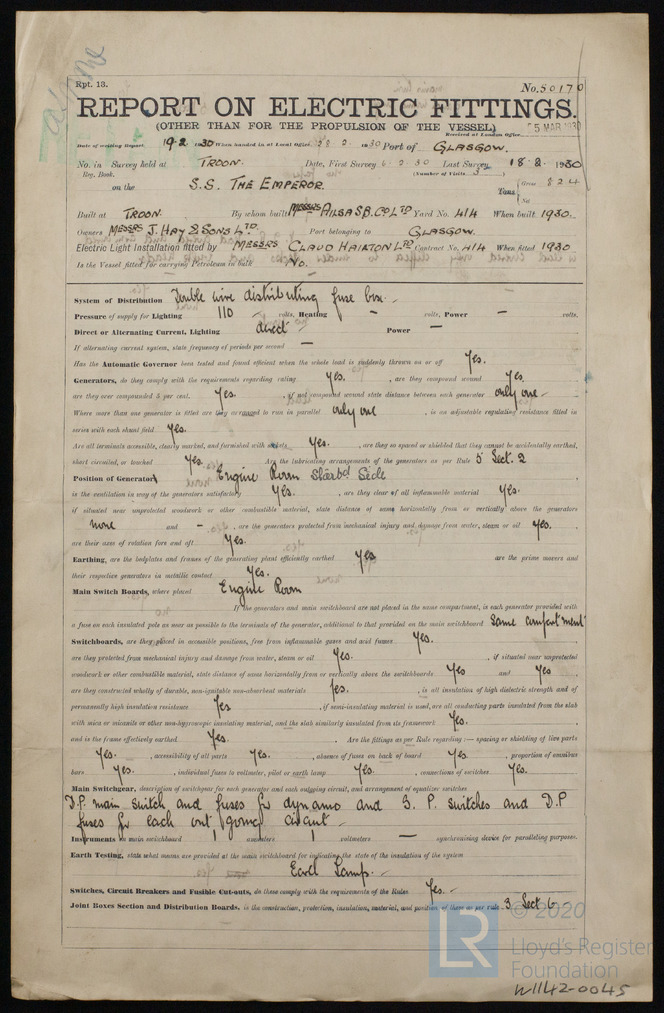 Rpt. 13.
No. 50170
REPORT ON ELECTRIC FITTINGS.
(OTHER THAN FOR THE PROPULSION OF THE VESSEL)
Received at London Office 5 MAR 1930
Date of writing Report 19·2 1930 When handed in at Local Office 2 1930 Port of GLASGOW.
No. in Survey held at TROON. Date, First Survey 6·2·30 Last Survey 18·2·1930
Reg. Book. (Number of Visits 3
on the S.S. THE EMPEROR. Tons Gross 824
Net
Built at TROON. By whom built MESSRS AILSA S.B. CO LTD Yard No. 414 When built 1930.
Owners MESSRS J. HAY & SONS LTD. Port belonging to GLASGOW.
Electric Light Installation fitted by MESSRS CLAUD HAMILTON LTD Contract No. 414 When fitted 1930
Is the Vessel fitted for carrying Petroleum in bulk No.
System of Distribution Double wire distributing fuse box.
Pressure of supply for Lighting 110 volts, Heating – volts, Power – volts.
Direct or Alternating Current, Lighting direct Power –
If alternating current system, state frequency of periods per second –
Has the Automatic Governor been tested and found efficient when the whole load is suddenly thrown on or off Yes.
Generators, do they comply with the requirements regarding rating Yes. , are they compound wound Yes.
are they over compounded 5 per cent. Yes. , if not compound wound state distance between each generator only one
Where more than one generator is fitted are they arranged to run in parallel only one , is an adjustable regulating resistance fitted in
series with each shunt field Yes.
Are all terminals accessible, clearly marked, and furnished with sockets Yes. , are they so spaced or shielded that they cannot be accidentally earthed,
short circuited, or touched Yes. Are the lubricating arrangements of the generators as per Rule 5 Sect. 2
Position of Generators Engine Room Starbd Side
is the ventilation in way of the generators satisfactory Yes. , are they clear of all inflammable material Yes.
if situated near unprotected woodwork or other combustible material, state distance of same horizontally from or vertically above the generators
none and – , are the generators protected from mechanical injury and damage from water, steam or oil Yes.
are their axes of rotation fore and aft Yes.
Earthing, are the bedplates and frames of the generating plant efficiently earthed Yes are the prime movers and
their respective generators in metallic contact Yes.
Main Switch Boards, where placed Engine Room
If the generators and main switchboard are not placed in the same compartment, is each generator provided with
a fuse on each insulated pole as near as possible to the terminals of the generator, additional to that provided on the main switchboard same compartment
Switchboards, are they placed in accessible positions, free from inflammable gases and acid fumes Yes.
are they protected from mechanical injury and damage from water, steam or oil Yes. , if situated near unprotected
woodwork or other combustible material, state distance of same horizontally from or vertically above the switchboards Yes and Yes
are they constructed wholly of durable, non-ignitable non-absorbent materials Yes. , is all insulation of high dielectric strength and of
permanently high insulation resistance Yes , if semi-insulating material is used, are all conducting parts insulated from the slab
with mica or micanite or other non-hygroscopic insulating material, and the slab similarly insulated from its framework Yes.
and is the frame effectively earthed Yes. Are the fittings as per Rule regarding :— spacing or shielding of live parts
Yes. , accessibility of all parts Yes. , absence of fuses on back of board Yes , proportion of omnibus
bars Yes. , individual fuses to voltmeter, pilot or earth lamp Yes. , connections of switches Yes.
Main Switchgear, description of switchgear for each generator and each outgoing circuit, and arrangement of equalizer switches
D.P. main switch and fuses for dynamo and S.P. switches and D.P
fuses for each out going circuit
Instruments on main switchboard 1 ammeters 1 voltmeters – synchronising device for paralleling purposes.
Earth Testing, state what means are provided at the main switchboard for indicating the state of the insulation of the system
Earth Lamp.
Switches, Circuit Breakers and Fusible Cut-outs, do these comply with the requirements of the Rules Yes.
Joint Boxes Section and Distribution Boards, is the construction, protection, insulation, material, and position of these as per rule 3 Sect 6
© 2020
LR
Lloyd's Register
Foundation
W1142-0045